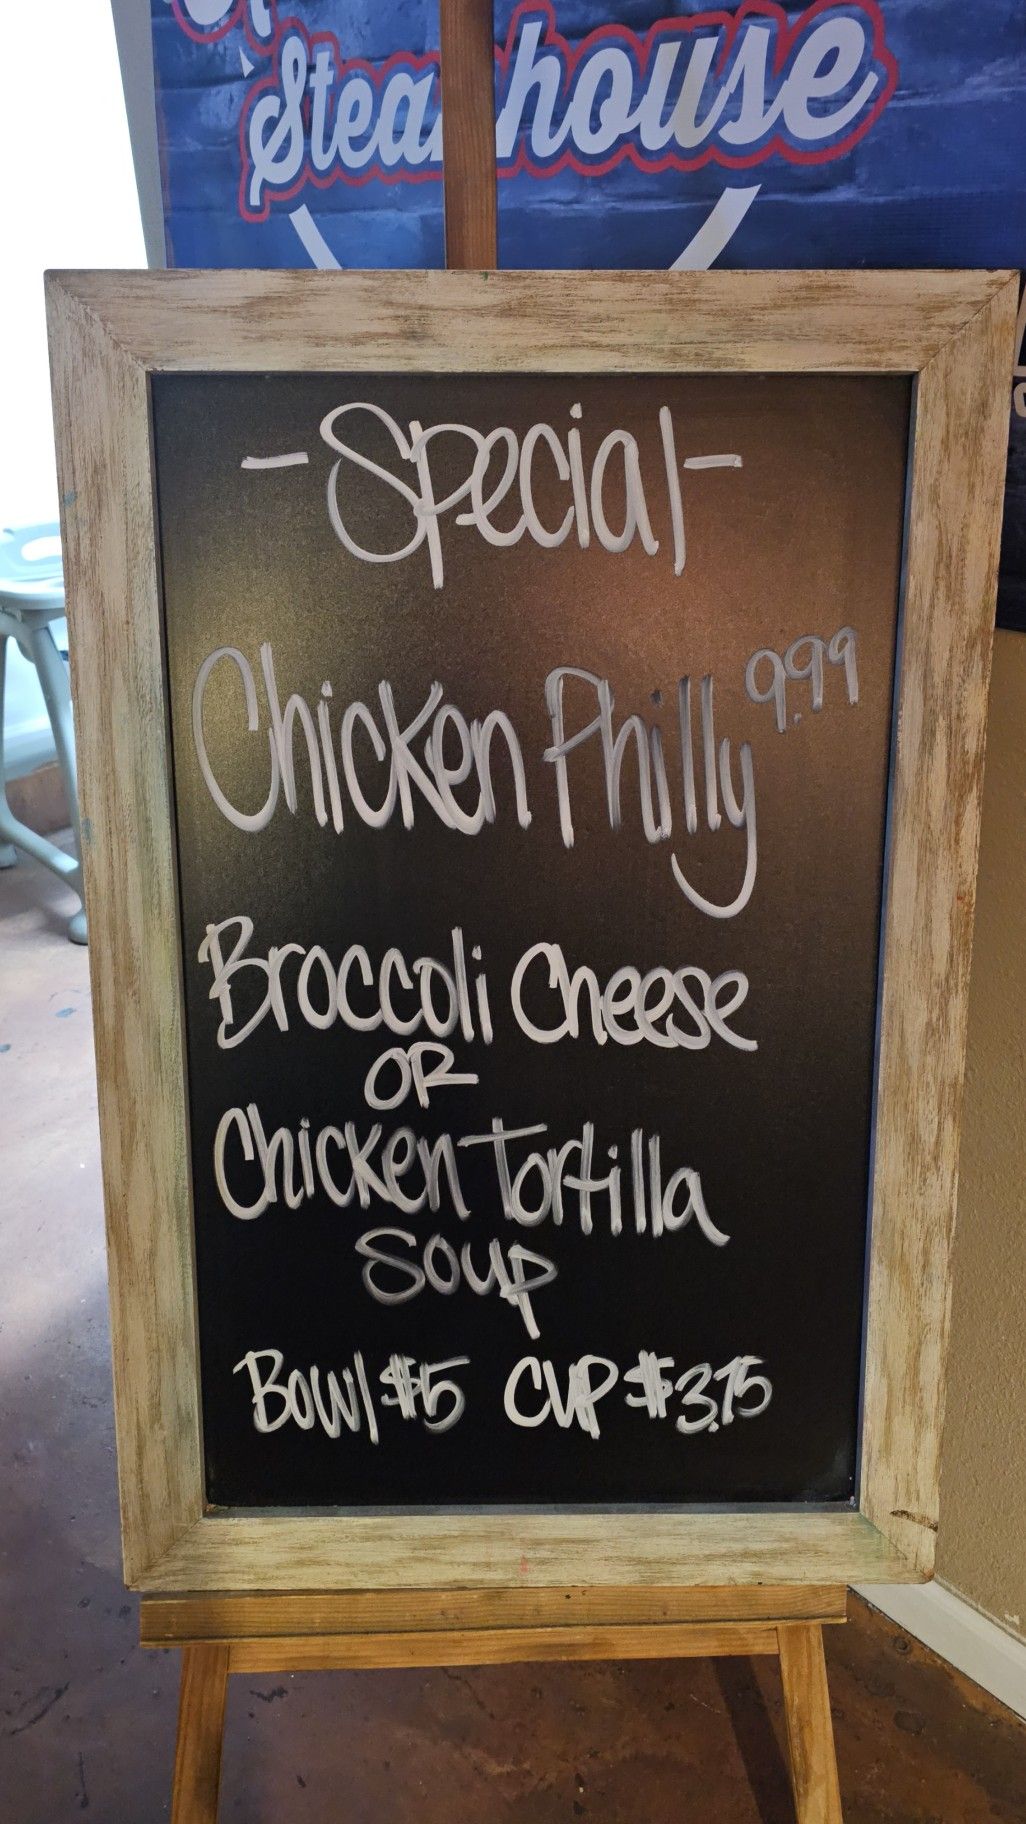 Steakhouse
-Special-
Chicken Philly 9.99
Broccoli Cheese
OR
Chicken Tortilla
Soup
Bowl $5 CUP $3.75